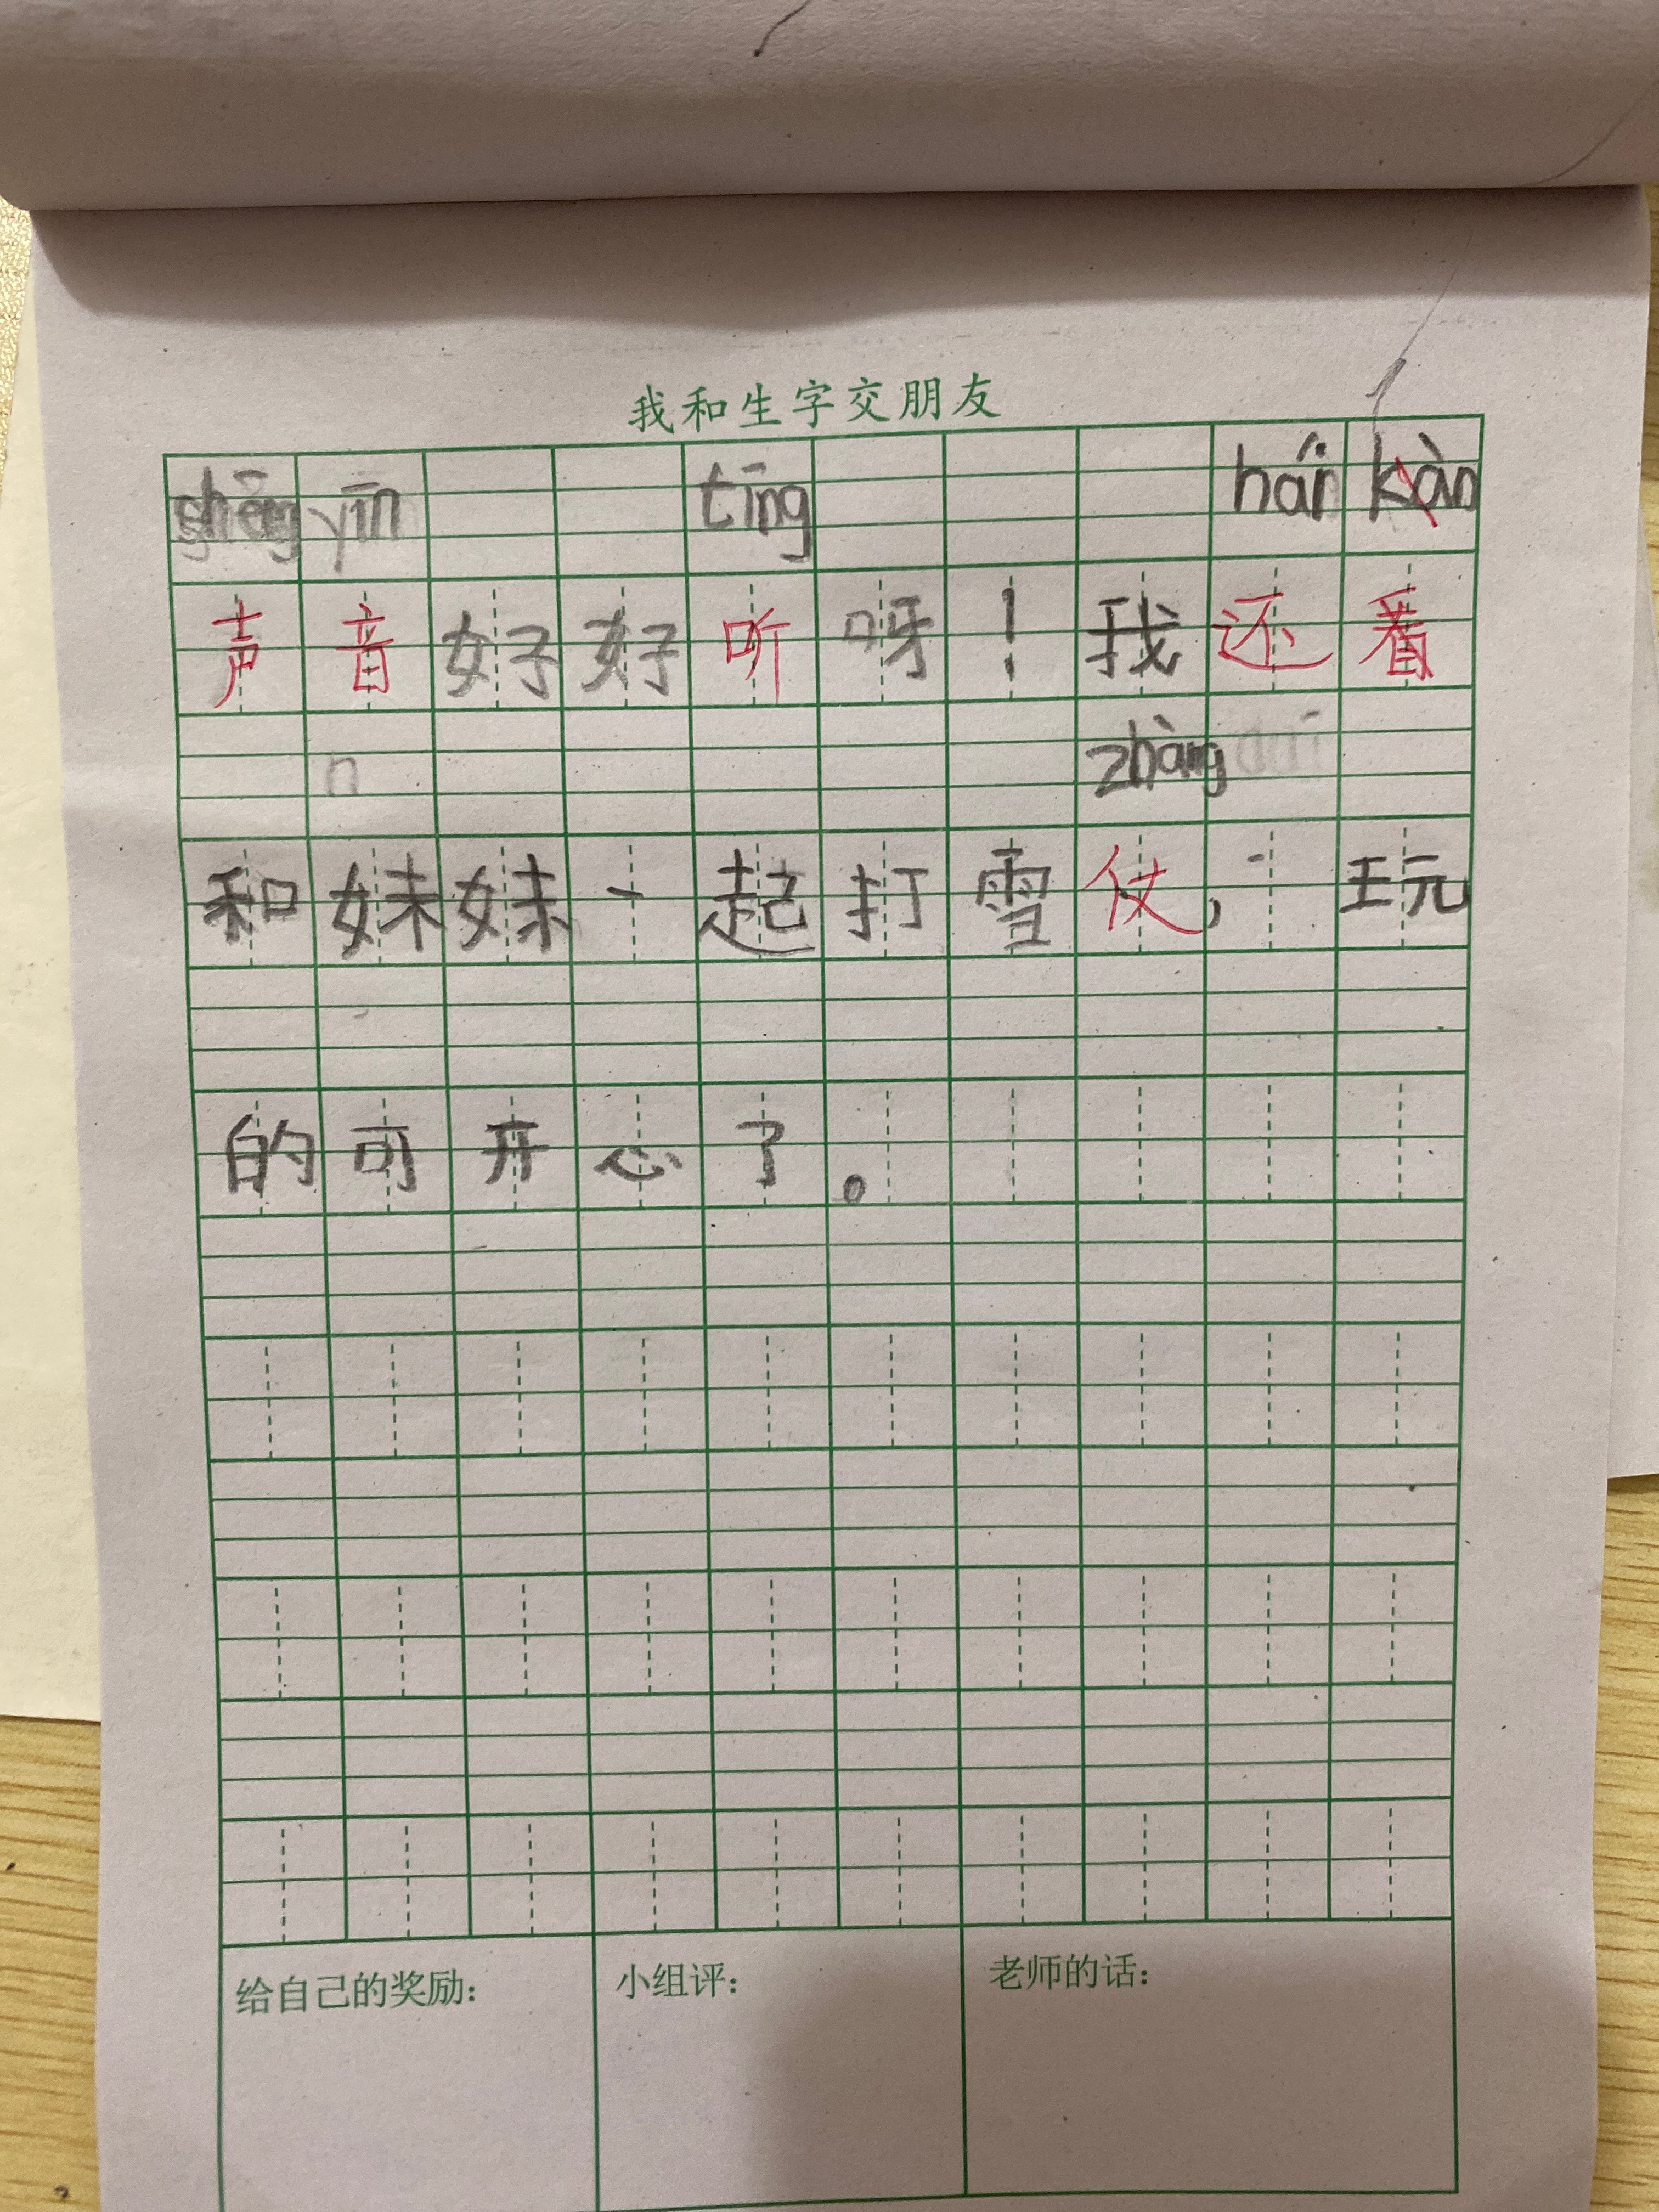 我和生字交朋友
shēng yīn tīng hái kàn
声音好好听呀！我还看
n zhàng
和妹妹一起打雪仗，玩
的可开心了。
给自己的奖励：
小组评：
老师的话：